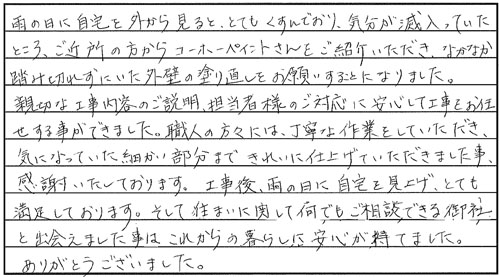 雨の日に自宅を外から見ると、とてもくすんでおり、気分が滅入っていた
ところ、ご近所の方からコーホーペイントさんをご紹介いただき、なかなか
踏み切れずにいた外壁の塗り直しをお願いすることになりました。
親切な工事内容のご説明、担当者様のご対応に安心して工事をお任
せする事ができました。職人の方々には、丁寧な作業をしていただき、
気になっていた細かい部分まできれいに仕上げていただきました事、
感謝いたしております。工事後、雨の日に自宅を見上げ、とても
満足しております。そして住まいに関して何でもご相談できる御社
と出会えました事は、これからの暮らしに安心が持てました。
ありがとうございました。